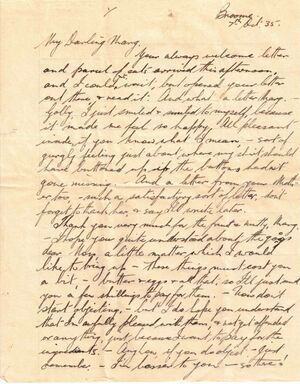 Broome
7th Oct. 35.
My Darling Mary,
Your always welcome letter
and parcel of eats arrived this afternoon,
and I couldn't wait, but opened your letter
out there, & read it. And what a letter Mary.
Golly, I just smiled & smiled to myself, because
it made me feel so happy. All pleasant
inside, if you know what I mean – sort of
gurgly feeling just about where my shirt should
have buttoned up if the buttons hadn't
gone missing. And a letter from your Mother
too, – such a satisfactory sort of letter, don't
forget to thank her, & say I'll write later.
Thank you very much for the fruit & nuts, Mary.
– I hope you quite understand about the
dear. Now, a little matter which I would
like to bring up – these things must cost you
a bit, – butter & eggs & all that, so I'll just send
you a few shillings to pay for them. – Now don't
start objecting. – but I do hope you understand
that I'm awfully pleased with them, & not offended
or anything, just because I want to pay for the
ingredients. – Angry if you do object. Just
remember – I'm bosses to you – so there!